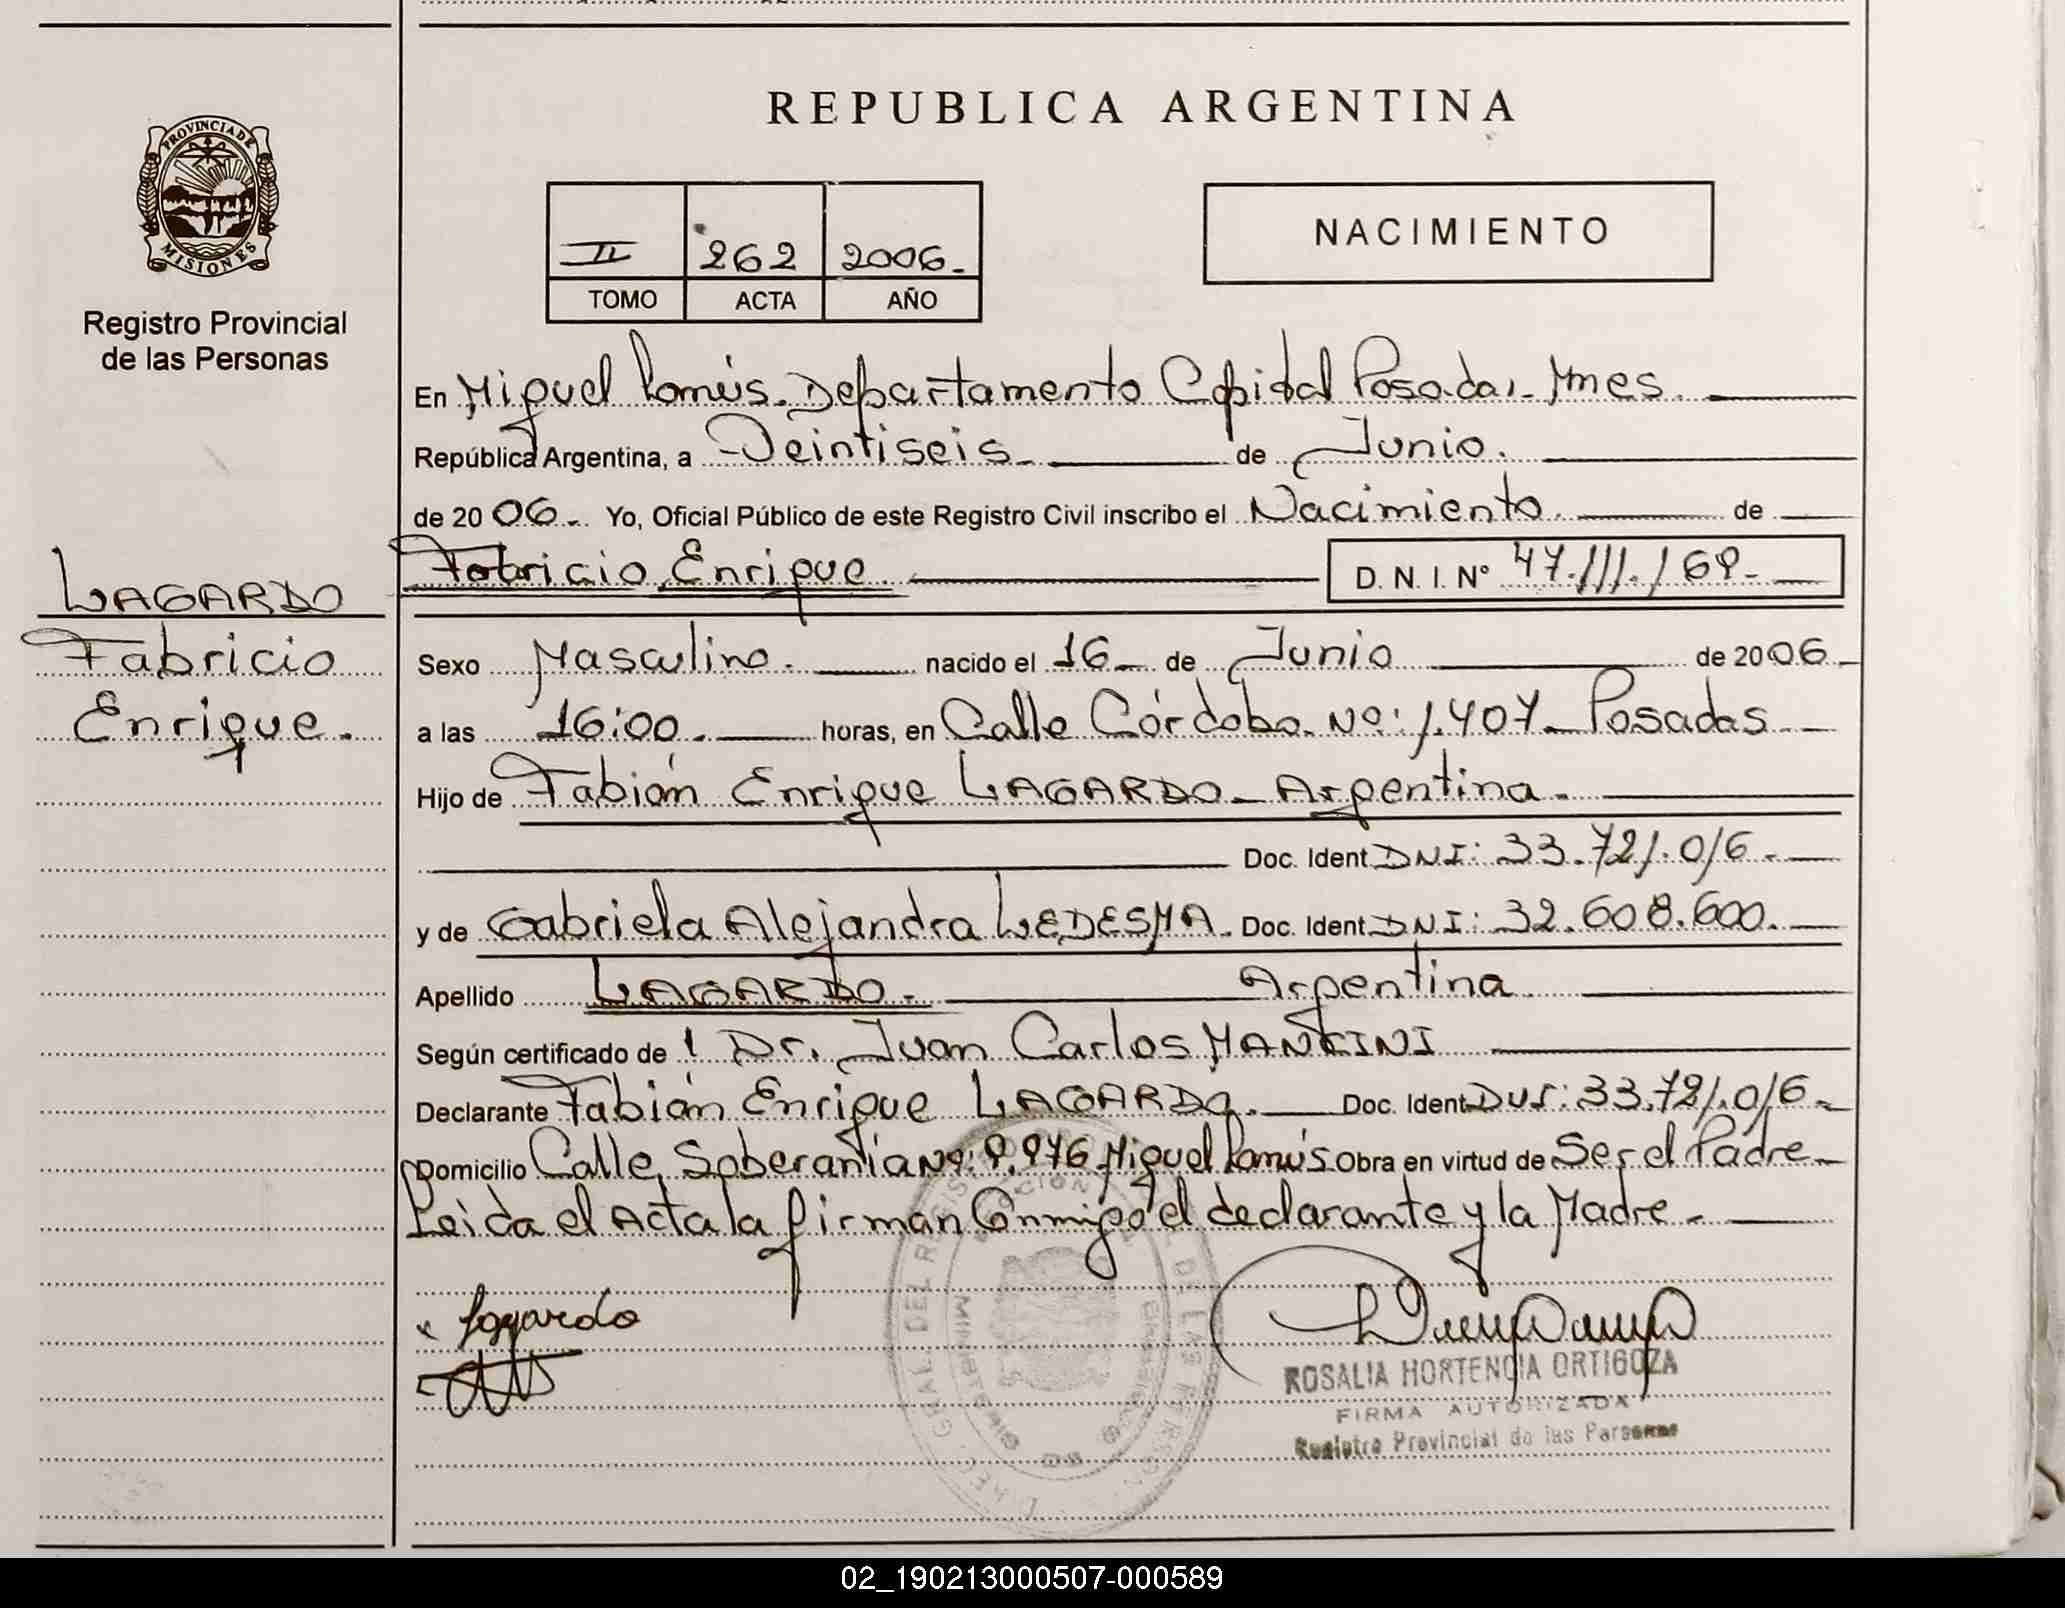 REPUBLICA ARGENTINA
PROVINCIA DE MISIONES
Registro Provincial
de las Personas
II 262 2006.
TOMO ACTA AÑO
NACIMIENTO
En Miguel Lanús. Departamento Capital Posadas - Mnes.
República Argentina, a Veintiseis de Junio.
de 2006. Yo, Oficial Público de este Registro Civil inscribo el Nacimiento. de
Fabricio Enrique D. N. I. Nº 47.111.169.
LAGARDO
Fabricio
Enrique.
Sexo Masculino. nacido el 16 de Junio de 2006
a las 16:00. horas, en Calle Córdoba. Nº: 1.407 - Posadas
Hijo de Fabián Enrique LAGARDO - Argentina.
Doc. Ident. DNI: 33.721.016.
y de Gabriela Alejandra LEDESMA. Doc. Ident. DNI: 32.608.600.
Apellido LAGARDO. Argentina
Según certificado de Dr. Juan Carlos MANCINI
Declarante Fabián Enrique LAGARDO. Doc. Ident. DNI: 33.721.016
Domicilio Calle Soberanía Nº: 9.976 Miguel Lanús Obra en virtud de Ser el Padre
Leida el Acta la firman Conmigo el declarante y la Madre
Lagardo
ROSALIA HORTENCIA ORTIGOZA
FIRMA AUTORIZADA
Registro Provincial de las Personas
02_190213000507-000589